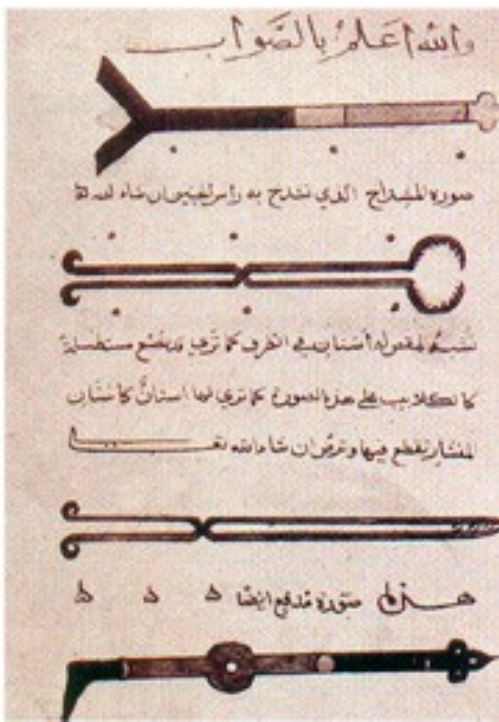 والله اعلم بالصواب
صورة المشداخ الذي تشدخ به راس الجنين ان شاء الله ه
تشبه المقص له اسنان في الطرف كما ترى وقد يصنع مستطيلة
كالكلاليب على هذه الصورة كما ترى لها اسنان كاسنان
المنشار يقطع فيها وترض ان شاء الله تعالى
هذه صورة مدفع ايضا ه ه ه